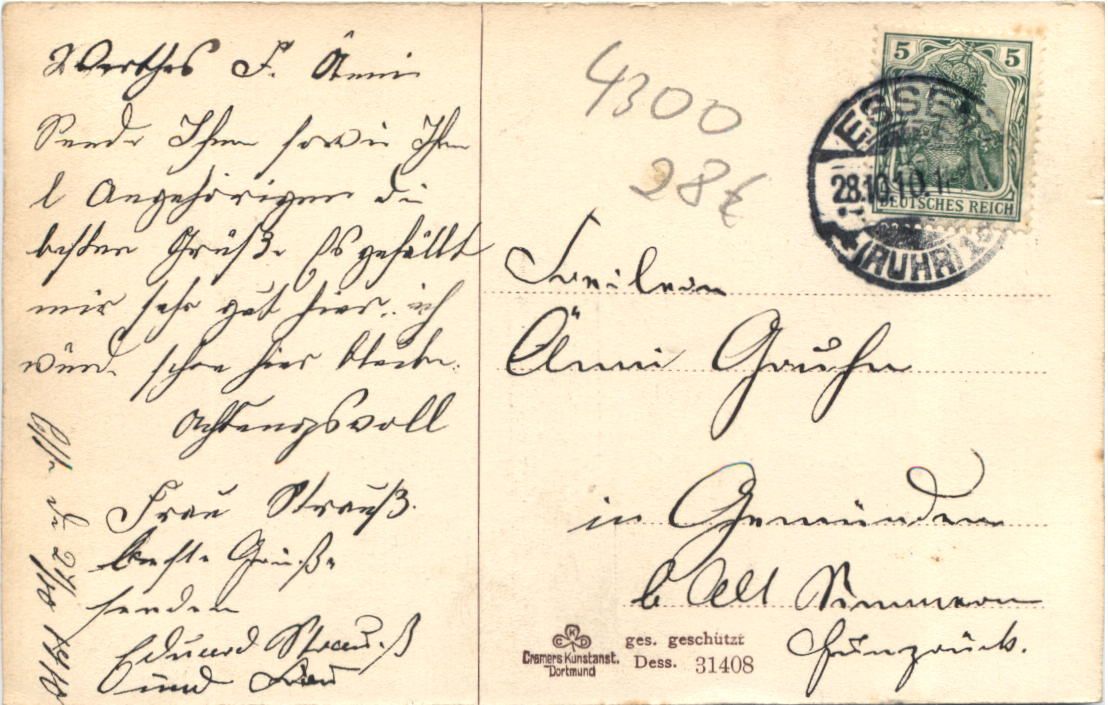 Werthes F. Änni
Sende Ihnen sowie Ihren
l Angehörigen die
besten Grüße Es gefällt
mir sehr gut hier, ich
würde schon hier bleiben.
Achtungsvoll
Frau Strauß.
beste Grüße
senden
Eduard Strauß
und Frau
Essen de 27/10 1910
4300
28€
5 5
DEUTSCHES REICH
ESSEN
28.10.10.11
(RUHR)
Freilein
Änni Gauhn
in Gemünden
b Alt Simmern
Hunsrück.
CKD
Cramers Kunstanst.
Dortmund
ges. geschützt
Dess. 31408